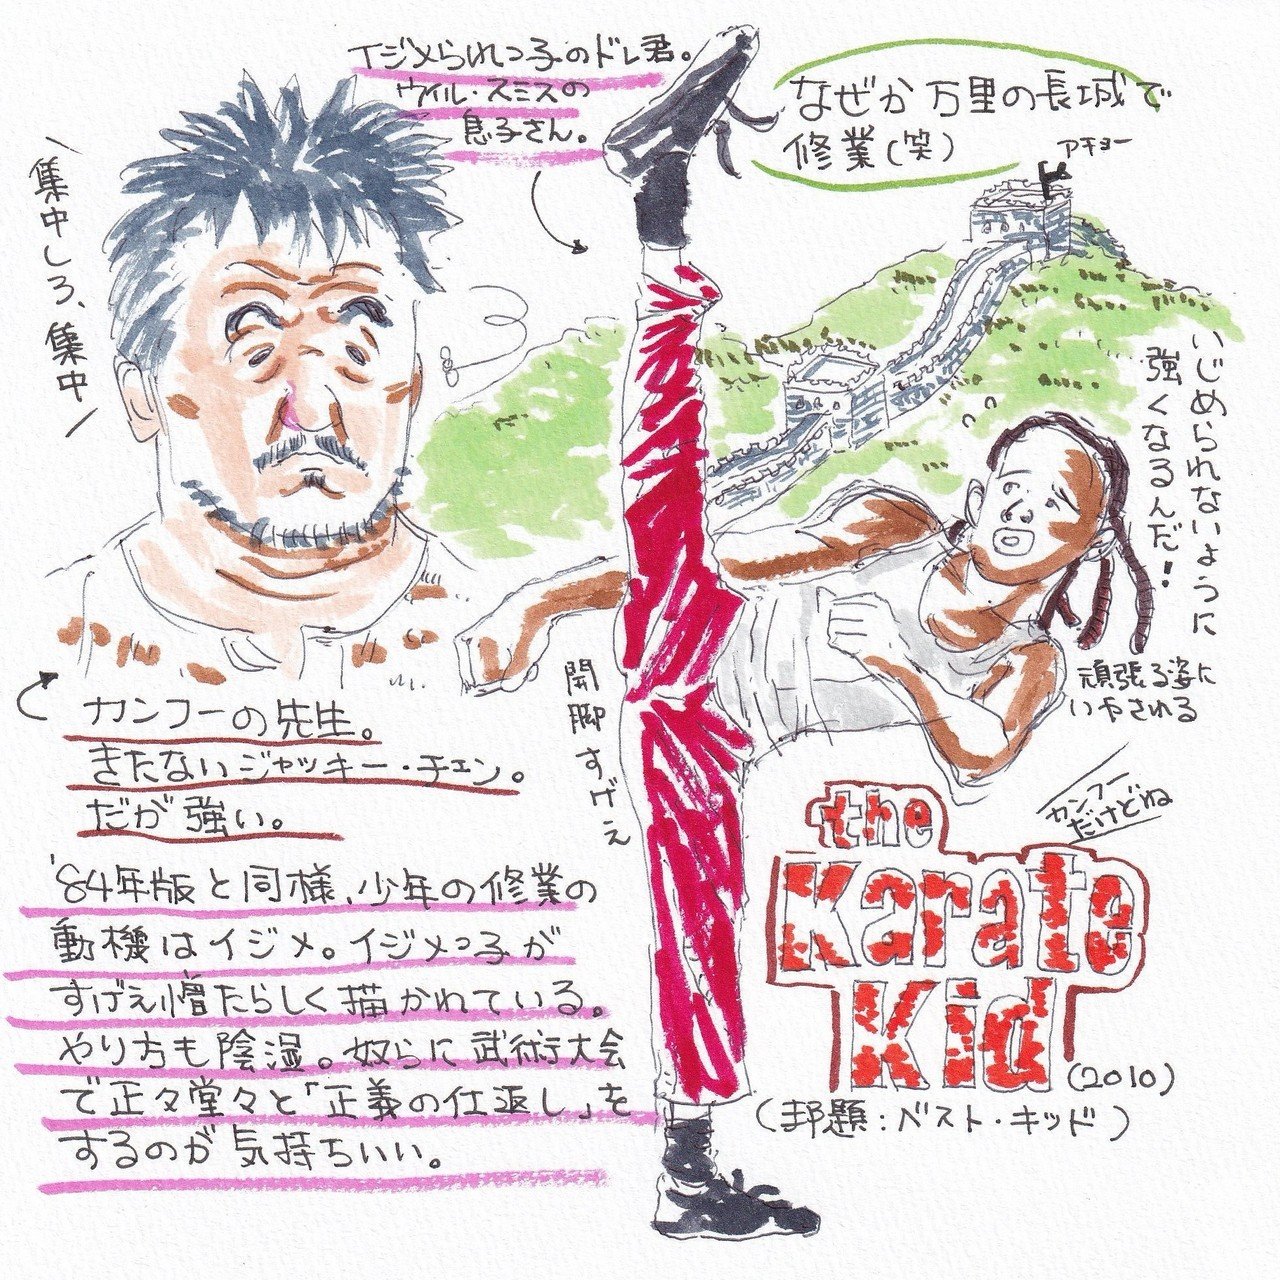 イジメられっ子のドレ君。
ウィル・スミスの
息子さん。
なぜか万里の長城で
修業(笑)
アチョー
集中しろ、集中
いじめられないように
強くなるんだ!
頑張る姿に
いやされる
開脚すげぇ
カンフーの先生。
きたないジャッキー・チェン。
だが強い。
'84年版と同様、少年の修業の
動機はイジメ。イジメっ子が
すげえ憎たらしく描かれている。
やり方も陰湿。奴らに武術大会
で正々堂々と「正義の仕返し」を
するのが気持ちいい。
カンフー
だけどね
the
Karate
Kid
(2010)
(邦題:ベスト・キッド)